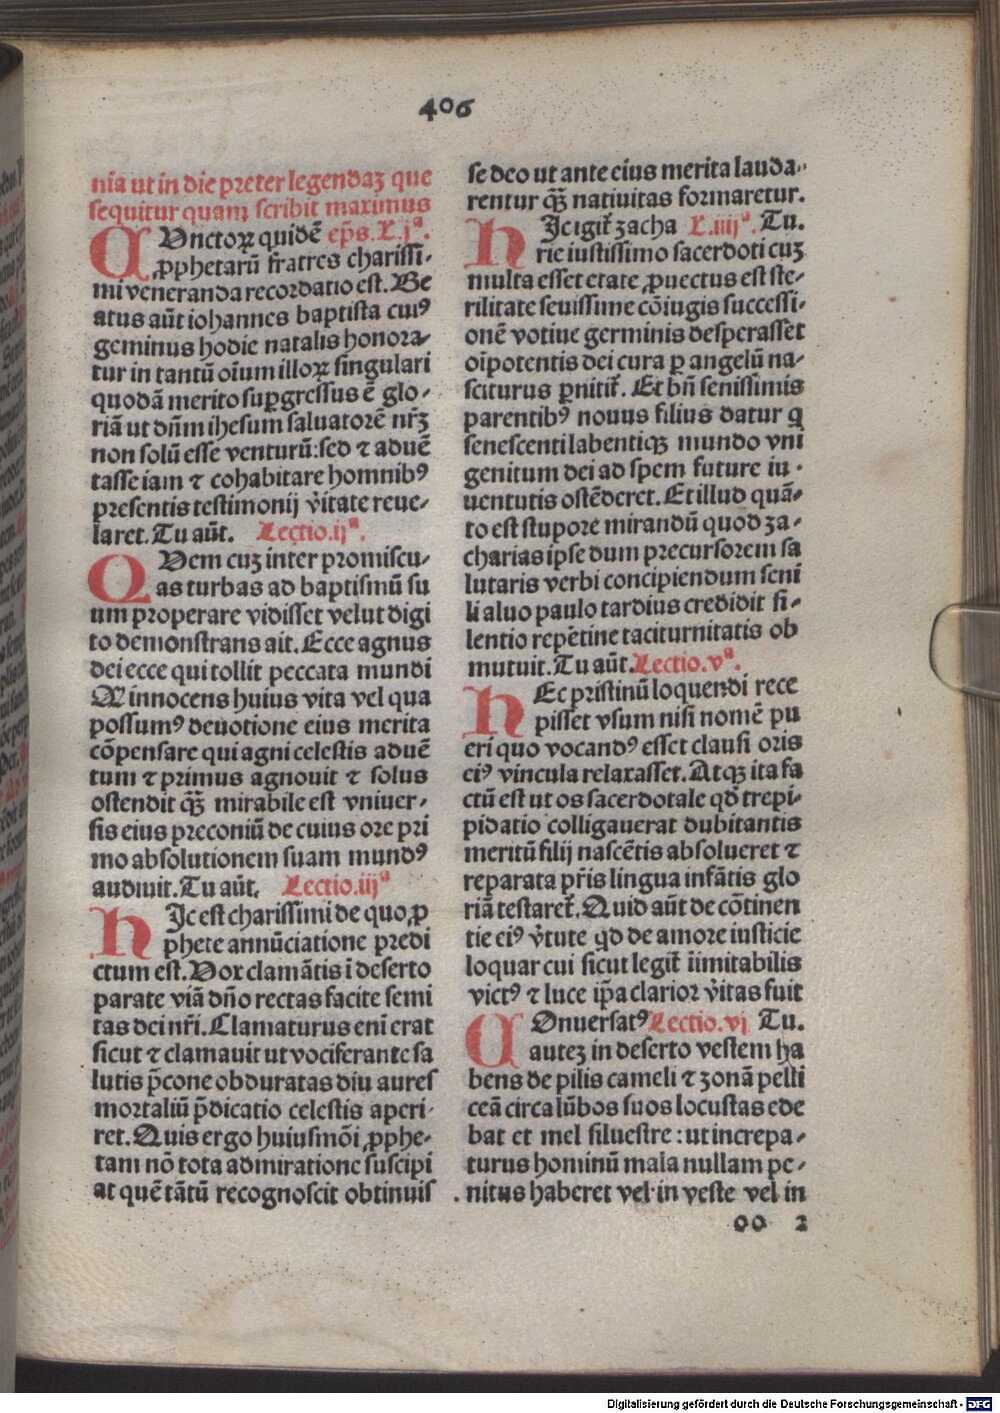 406
nia ut in die preter legendaꝫ que
sequitur quam scribit maximus
CVnctoꝝ quidē ep̄s. L.jª.
ꝓphetarū fratres charissi-
mi veneranda recordatio est. Be
atus aūt iohannes baptista cuiꝰ
geminus hodie natalis honora-
tur in tantū oīum illoꝝ singulari
quodā merito supgressus ē glo-
riā ut dn̄m ihesum saluatorē nr̄ꝫ
non solū esse venturū: sed ⁊ aduē
tasse iam ⁊ cohabitare homnibꝰ
presentis testimonij v̄itate reue-
laret. Tu aūt. Lectio.ijª.
QVem cuꝫ inter promiscu-
as turbas ad baptismū su
um properare vidisset velut digi
to demonstrans ait. Ecce agnus
dei ecce qui tollit peccata mundi
O innocens huius vita vel qua
possumꝰ deuotione eius merita
cōpensare qui agni celestis aduē
tum ⁊ primus agnouit ⁊ solus
ostendit qꝫ̄ mirabile est vniuer-
sis eius preconiū de cuius ore pri
mo absolutionem suam mundꝰ
audiuit. Tu aūt. Lectio.iijª
HIc est charissimi de quo ꝓ
phete annūciatione predi
ctum est. Vox clamātis ī deserto
parate viā dn̄o rectas facite semi
tas dei nr̄i. Clamaturus enī erat
sicut ⁊ clamauit ut vociferante sa
lutis p̄cone obduratas diu aures
mortaliū p̄dicatio celestis aperi-
ret. Quis ergo huiusmōi ꝓphe-
tam nō tota admiratione suscipi
at quē tātū recognoscit obtinuis
se deo ut ante eius merita lauda-
rentur qꝫ̄ natiuitas formaretur.
HIc igit̄ zacha L.iiijª. Tu.
rie iustissimo sacerdoti cuꝫ
multa esset etate ꝓuectus est ste-
rilitate seuissime cōiugis successi-
onē votiue germinis desperasset
oīpotentis dei cura ꝑ angelū na-
sciturus ꝑnitit̄. Et bn̄ senissimis
parentibꝰ nouus filius datur q
senescenti labentiqꝫ mundo vni
genitum dei ad spem future iu-
uentutis ostēderet. Et illud quā-
to est stupore mirandū quod za-
charias ipse dum precursorem sa
lutaris verbi concipiendum seni
li aluo paulo tardius credidit si-
lentio repētine taciturnitatis ob
mutuit. Tu aūt. Lectio.vª.
HEc pristinū loquendi rece
pisset vsum nisi nomē pu
eri quo vocandꝰ esset clausi oris
eiꝰ vincula relaxasset. Atqꝫ ita fa
ctū est ut os sacerdotale qd̄ trepi-
pidatio colligauerat dubitantis
meritū filij nascētis absolueret ⁊
reparata pr̄is lingua infātis glo
riā testaret̄. Quid aūt de cōtinen
tie eiꝰ v̄tute qd̄ de amore iusticie
loquar cui sicut legit̄ iīmitabilis
victꝰ ⁊ luce ip̄a clarior v̄itas fuit
COnuersatꝰ Lectio.vj Tu.
auteꝫ in deserto vestem ha
bens de pilis cameli ⁊ zonā pelli
ceā circa lūbos suos locustas ede
bat et mel siluestre: ut increpa-
turus hominū mala nullam pe-
nitus haberet vel in veste vel in
oo 2
Digitalisierung gefördert durch die Deutsche Forschungsgemeinschaft - DFG